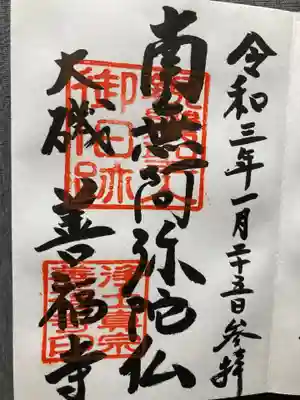 令和三年一月二十五日参拝
南無阿弥陀仏
大磯 善福寺
御旧跡
浄土真宗
善福寺印